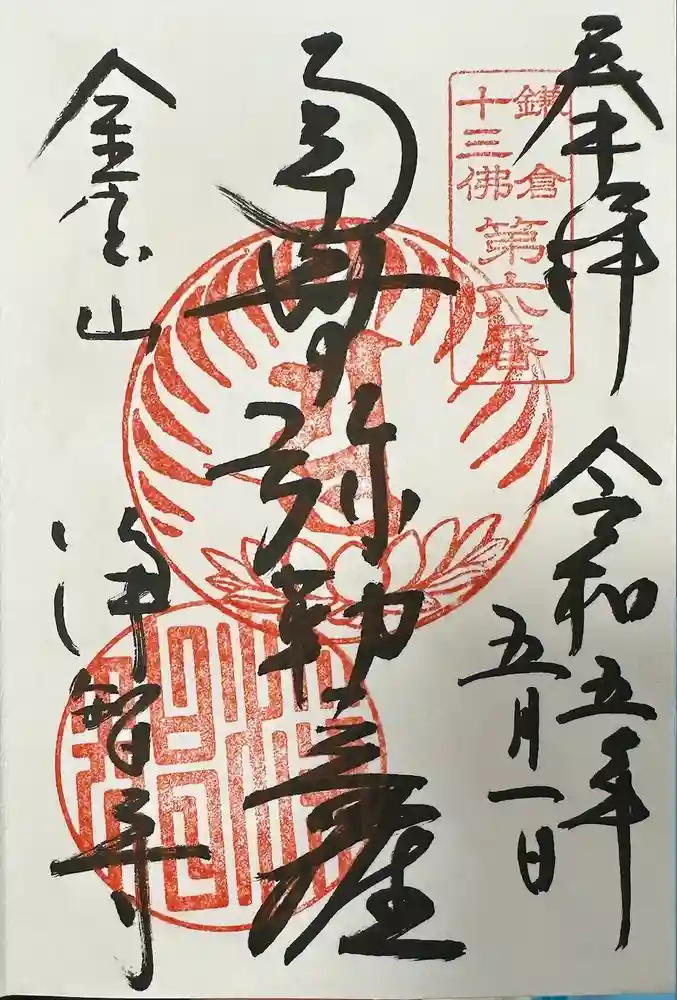 奉拝
令和五年
五月一日
鎌倉
十三佛
第六番
南無弥勒菩薩
金宝山
浄智寺